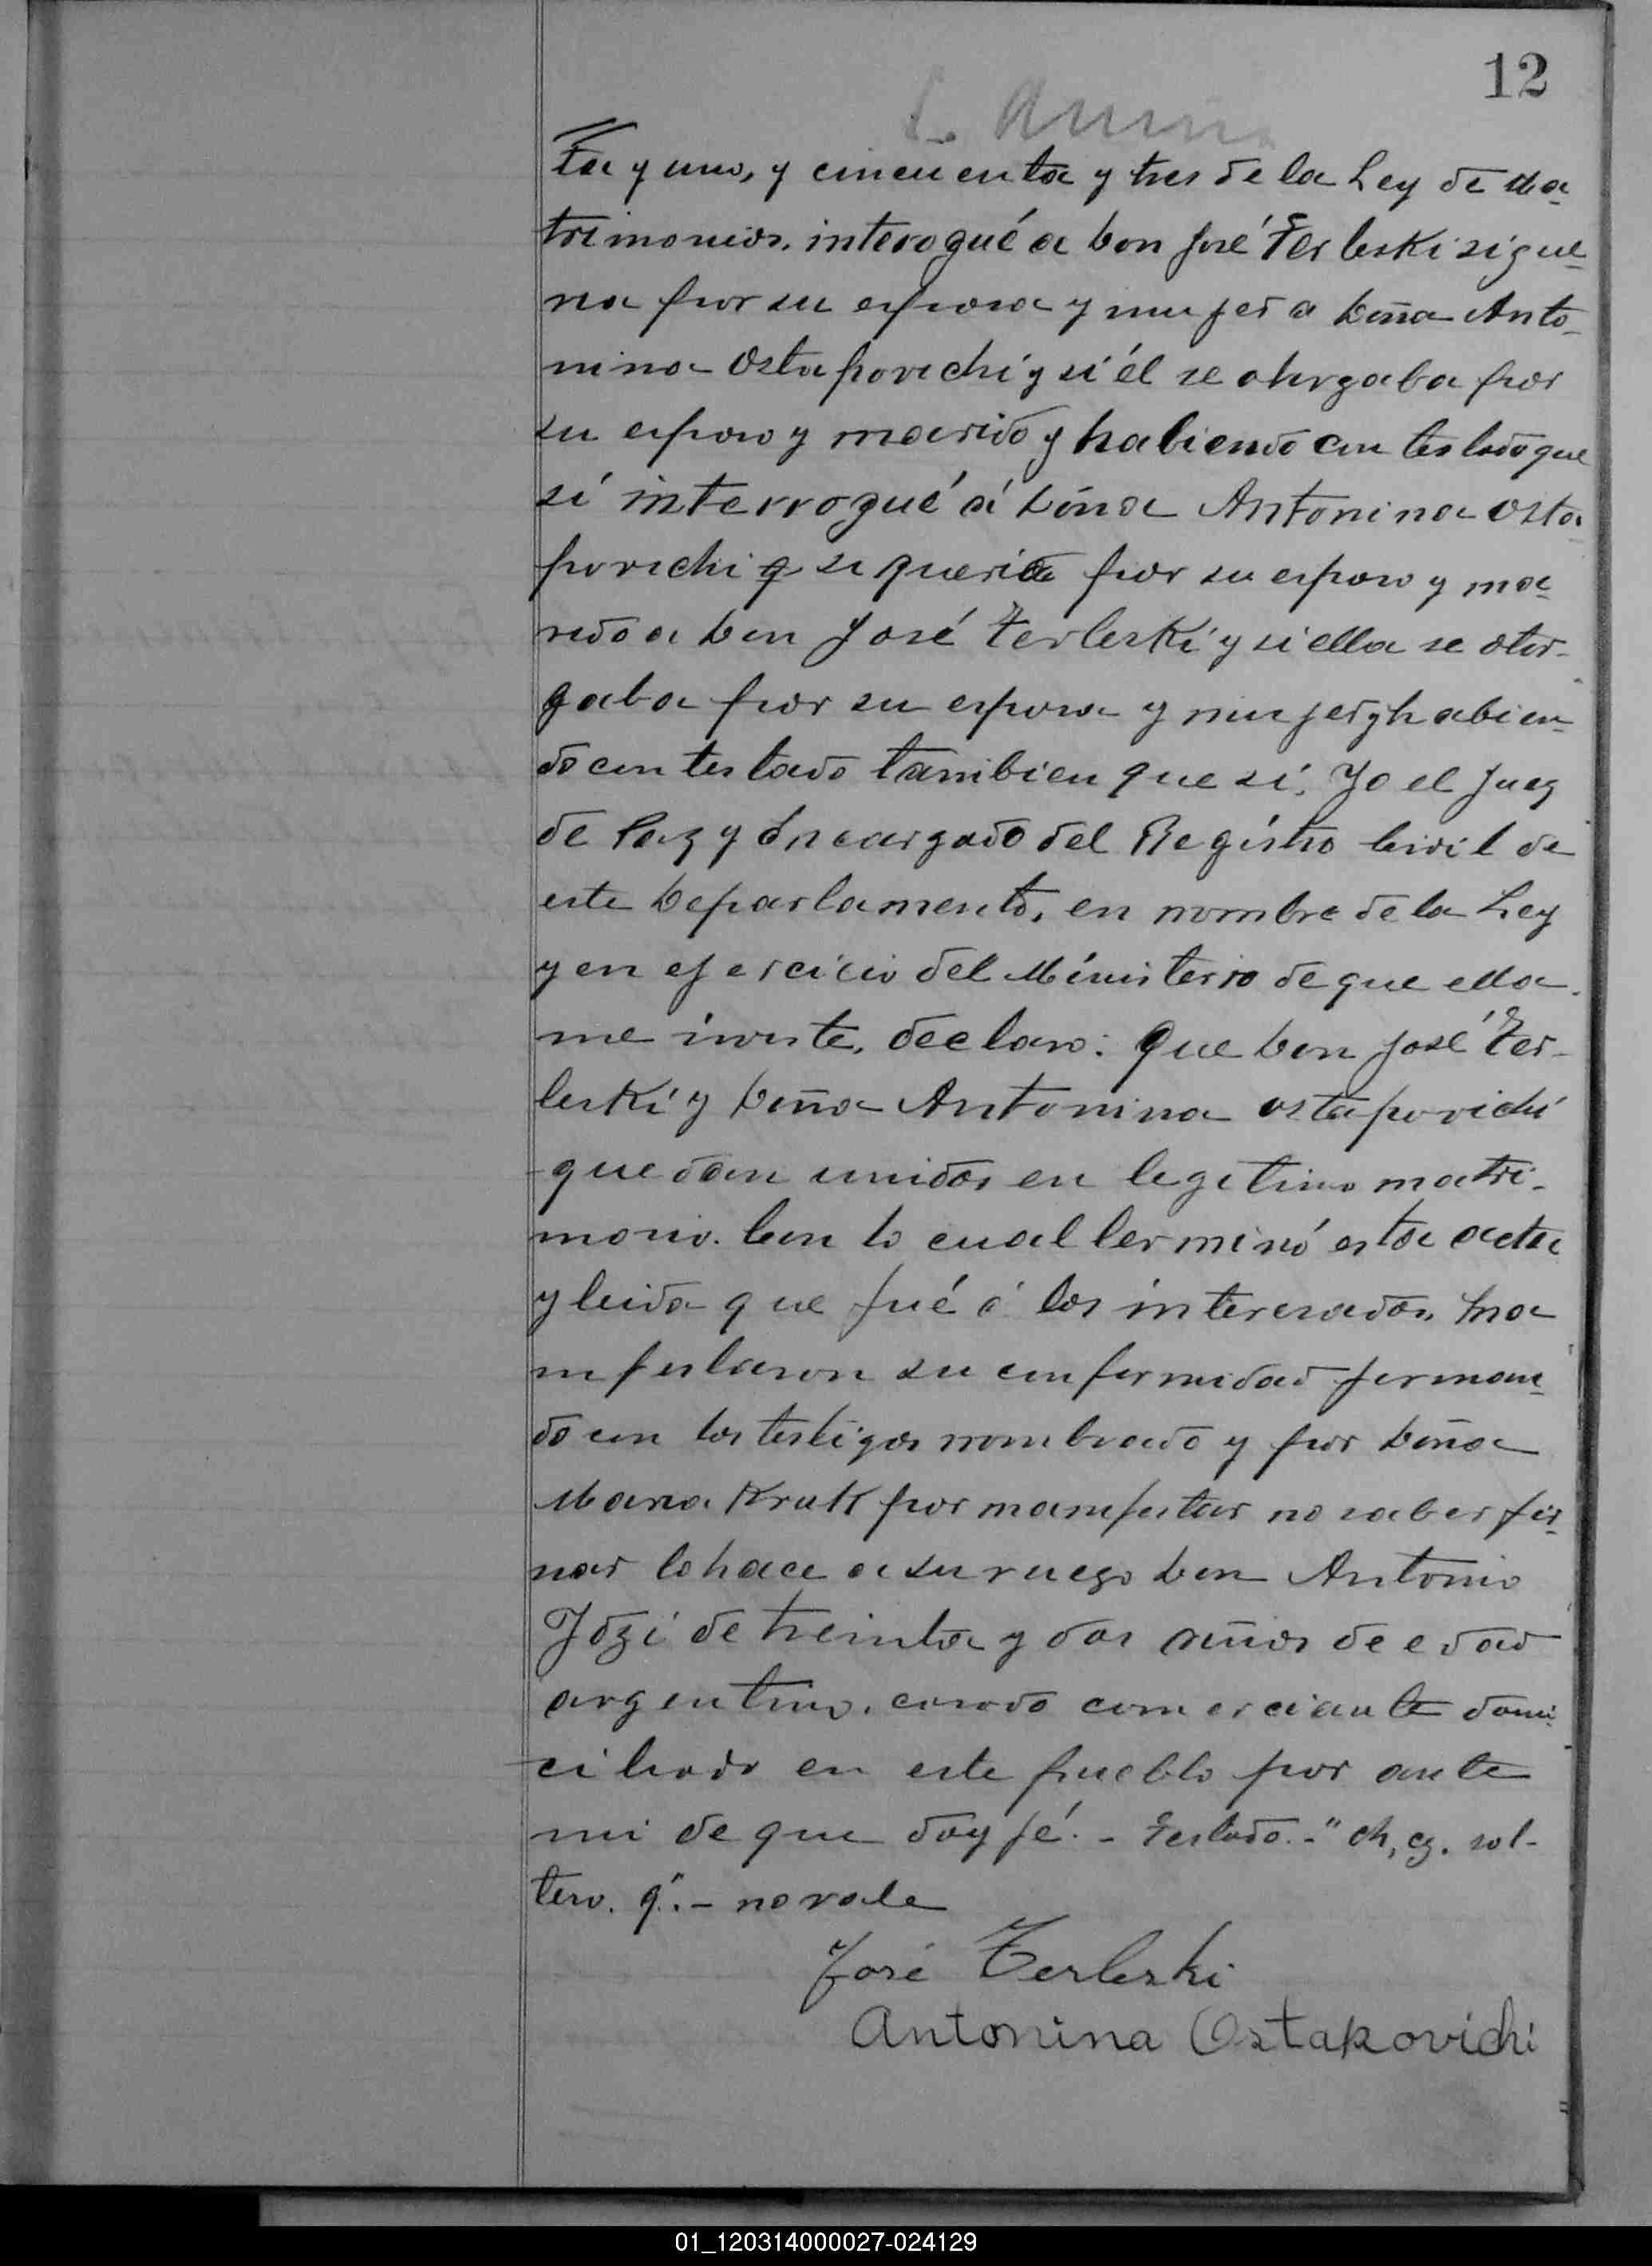 12
ta y uno, y cincuenta y tres de la Ley de Ma-
trimonios, interogué a Don José Terleski si que-
ria por su esposa y mujer a Doña Anto-
nina Ostapovichi y si él se otorgaba por
su esposo y marido y habiendo contestado que
sí interrogué á Doña Antonina Osta-
povichi q si queria por su esposo y ma-
rido a Don José Terleski y si ella se otor-
gaba por su esposa y mujer y habien-
do contestado tambien que sí, Yo el Juez
de Paz y Encargado del Registro Civil de
este Departamento, en nombre de la Ley
y en ejercicio del Ministerio de que ella
me inviste, declaro: Que Don José Ter-
leski y Doña Antonina Ostapovichi
quedan unidos en legitimo matri-
monio. Con lo cual terminó esta acta
y leida que fué á los interesados, ma
nifestaron su conformidad firman-
do con los testigos nombrado y por Doña
Maria Kruk por manifestar no saber fir-
mar lo hace a su ruego Don Antonio
de treinta y dos años de edad
argentino, casado comerciante domi-
ciliado en este pueblo por ante
mi de que doy fé. - Testado. - " ch, cz. sol-
tero. q". - no vale
José Terleski
Antonina Ostapovichi
01_120314000027-024129